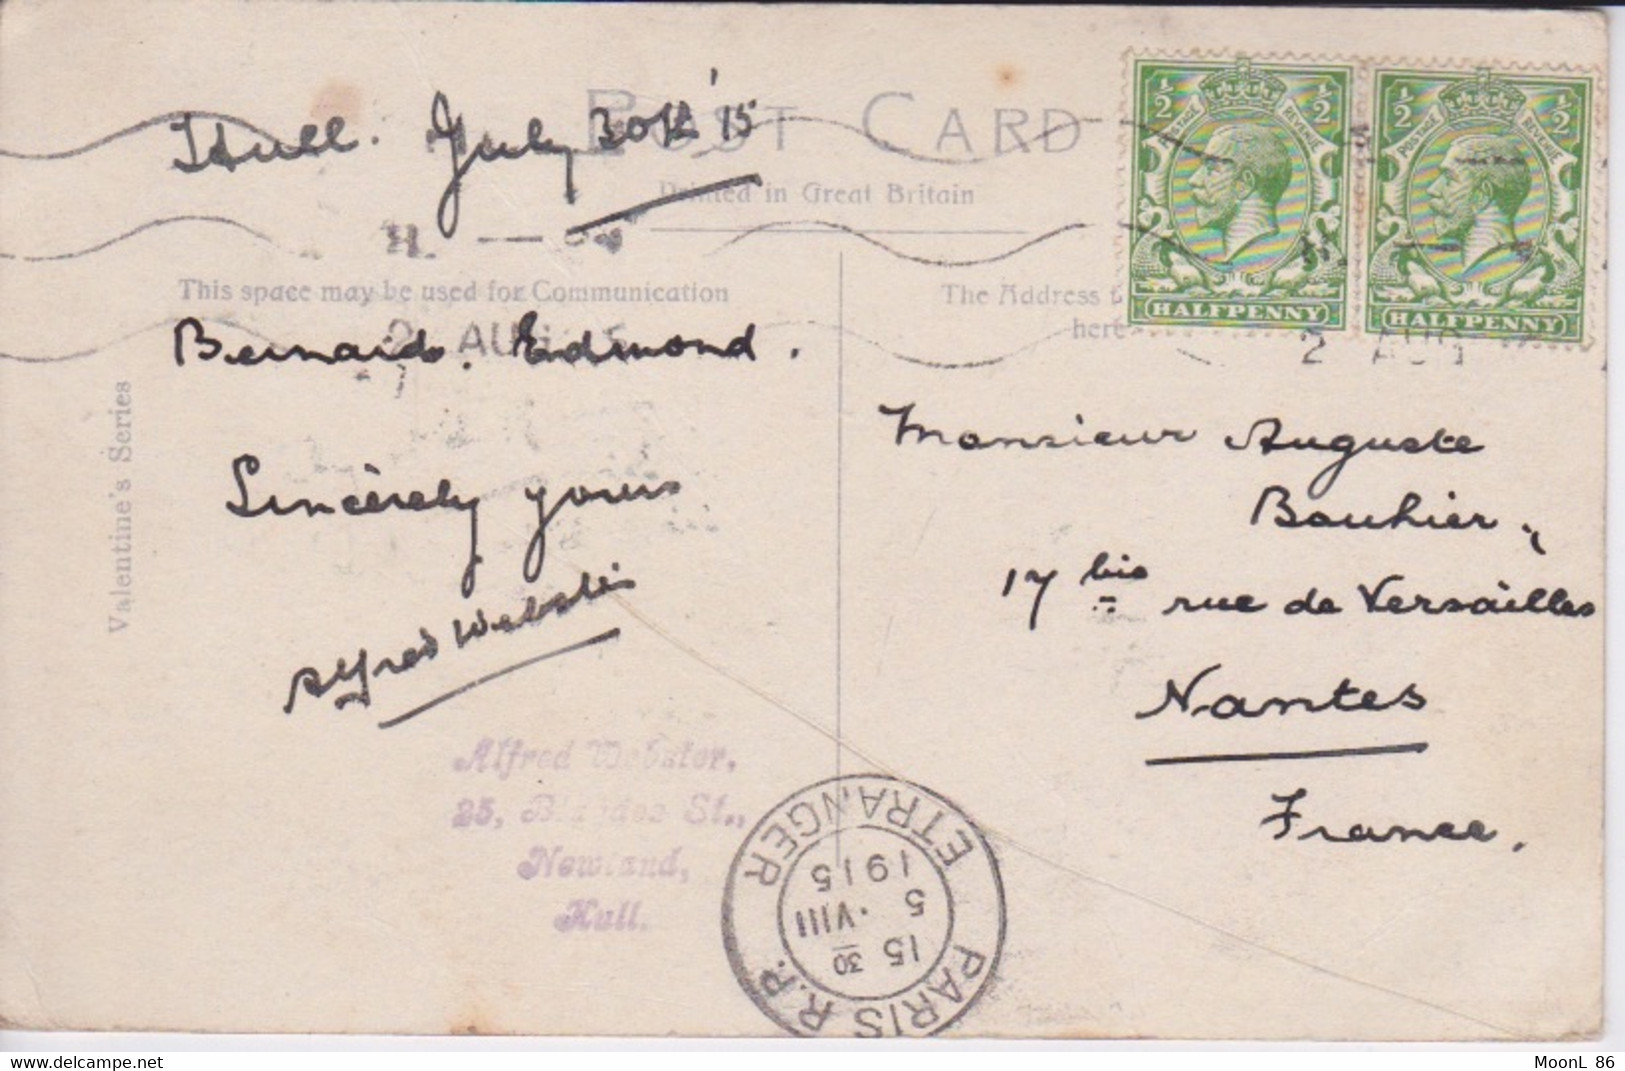 Hull. July 30th '15
POST CARD
Printed in Great Britain
This space may be used for Communication
The Address
here
Valentine's Series
Bernardo. Edmond.
Sincèrely yours
Alfred Webster
Alfred Webster,
25, St.,
Newland,
Hull.
Monsieur Auguste
Bouhier,
17 bis rue de Versailles
Nantes
France.
½ ½
POSTAGE REVENUE
HALFPENNY
½ ½
POSTAGE REVENUE
HALFPENNY
2 AUG
2 AUG
PARIS R.P. ETRANGER
15 30
5 .VIII
1915
MoonL 86
www.delcampe.com